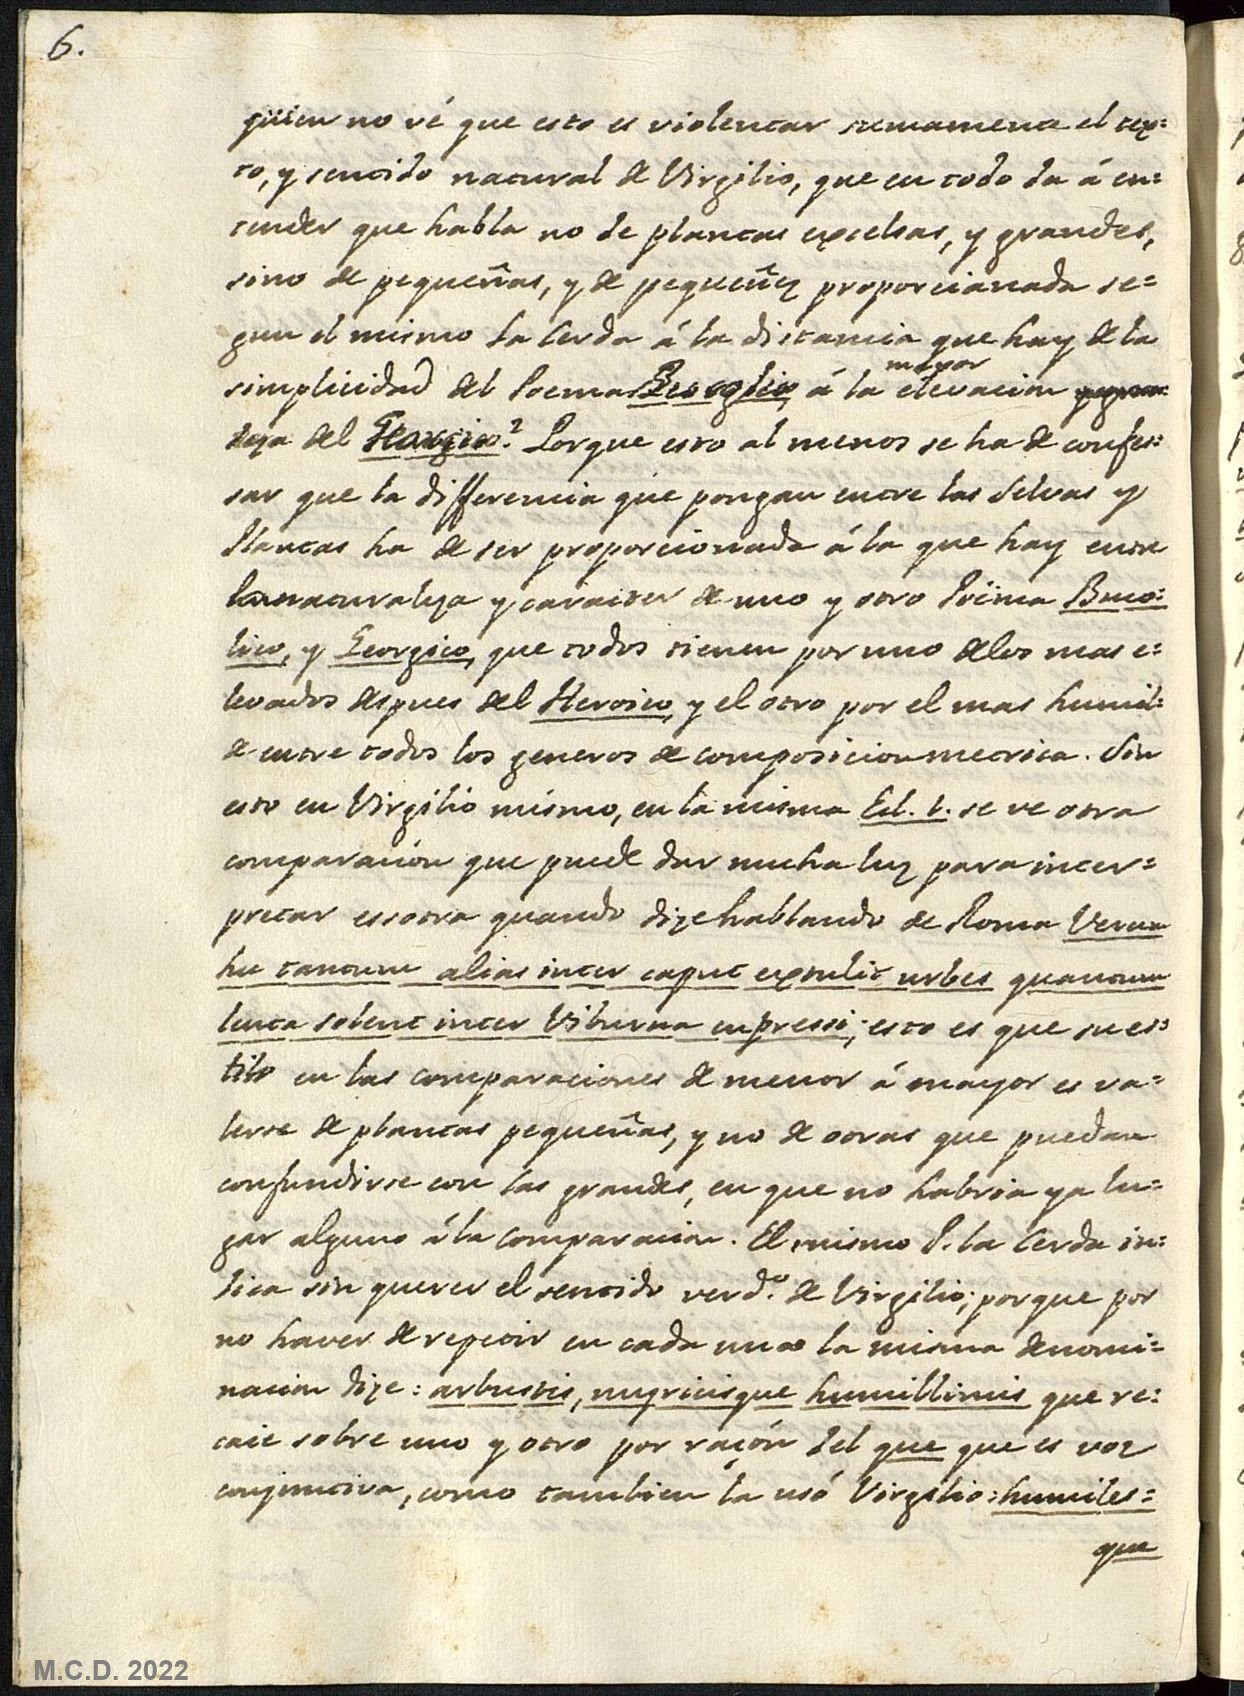 6.
quien no vé que esto es violentar sumamente el tex=
to, y sentido natural de Virgilio, que en todo da á en=
tender que habla no de plantas excelsas, y grandes,
sino de pequeñas, y de pequeñez proporcionada se=
gun el mismo la Cerda á la distancia que hay de la
mayor
simplicidad del Poema á la elevacion
deza del Georgico? Porque esto al menos se ha de confes=
sar que la differencia que pongan entre las Selvas y
Plantas ha de ser proporcionada á la que hay entre
la naturaleza y caracter de uno y otro Poëma Buco=
lico, y Georgico, que todos tienen por uno delos mas e=
levados despues del Heroico, y el otro por el mas humil=
de entre todos los generos de composicion metrica. Sin
esto en Virgilio mismo, en la misma Ecl. 1. se ve otra
comparacion que puede dar mucha luz para inter=
pretar essotra quando dize hablando de Roma Verum
hec tantum alias inter caput extulit urbes quantum
lenta solent inter Viburna cupressi; esto es que su es=
tilo en las comparaciones de menor á mayor es va=
lerse de plantas pequeñas, y no de otras que puedan
confundirse con las grandes, en que no habria ya lu=
gar alguno á la comparacion. El mismo P. la Cerda in=
dica sin querer el sentido verd.º de Virgilio; porque por
no haver de repetir en cada una la misma denomi=
nacion dize: arbustis, myricisque humillimis que re=
caie sobre uno y otro por razón del que que es voz
conjunctiva, como tambien la usó Virgilio: humiles=
que
M.C.D. 2022